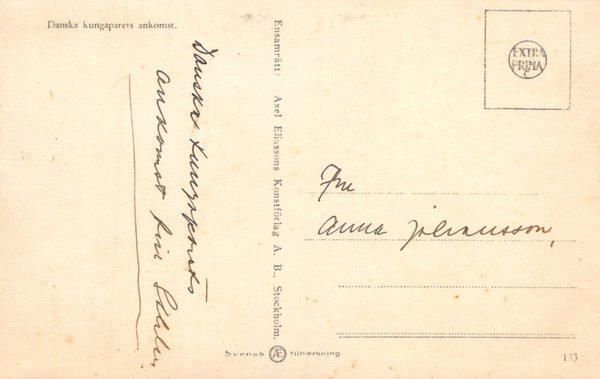 Danska kungaparets ankomst.
Danska kungaparets
ankomst
Ensamrätt: Axel Eliassons Konstförlag A. B., Stockholm.
EXTRA
PRIMA
C
Fru
Anna Johansson,
Svensk Æ tillverkning
153